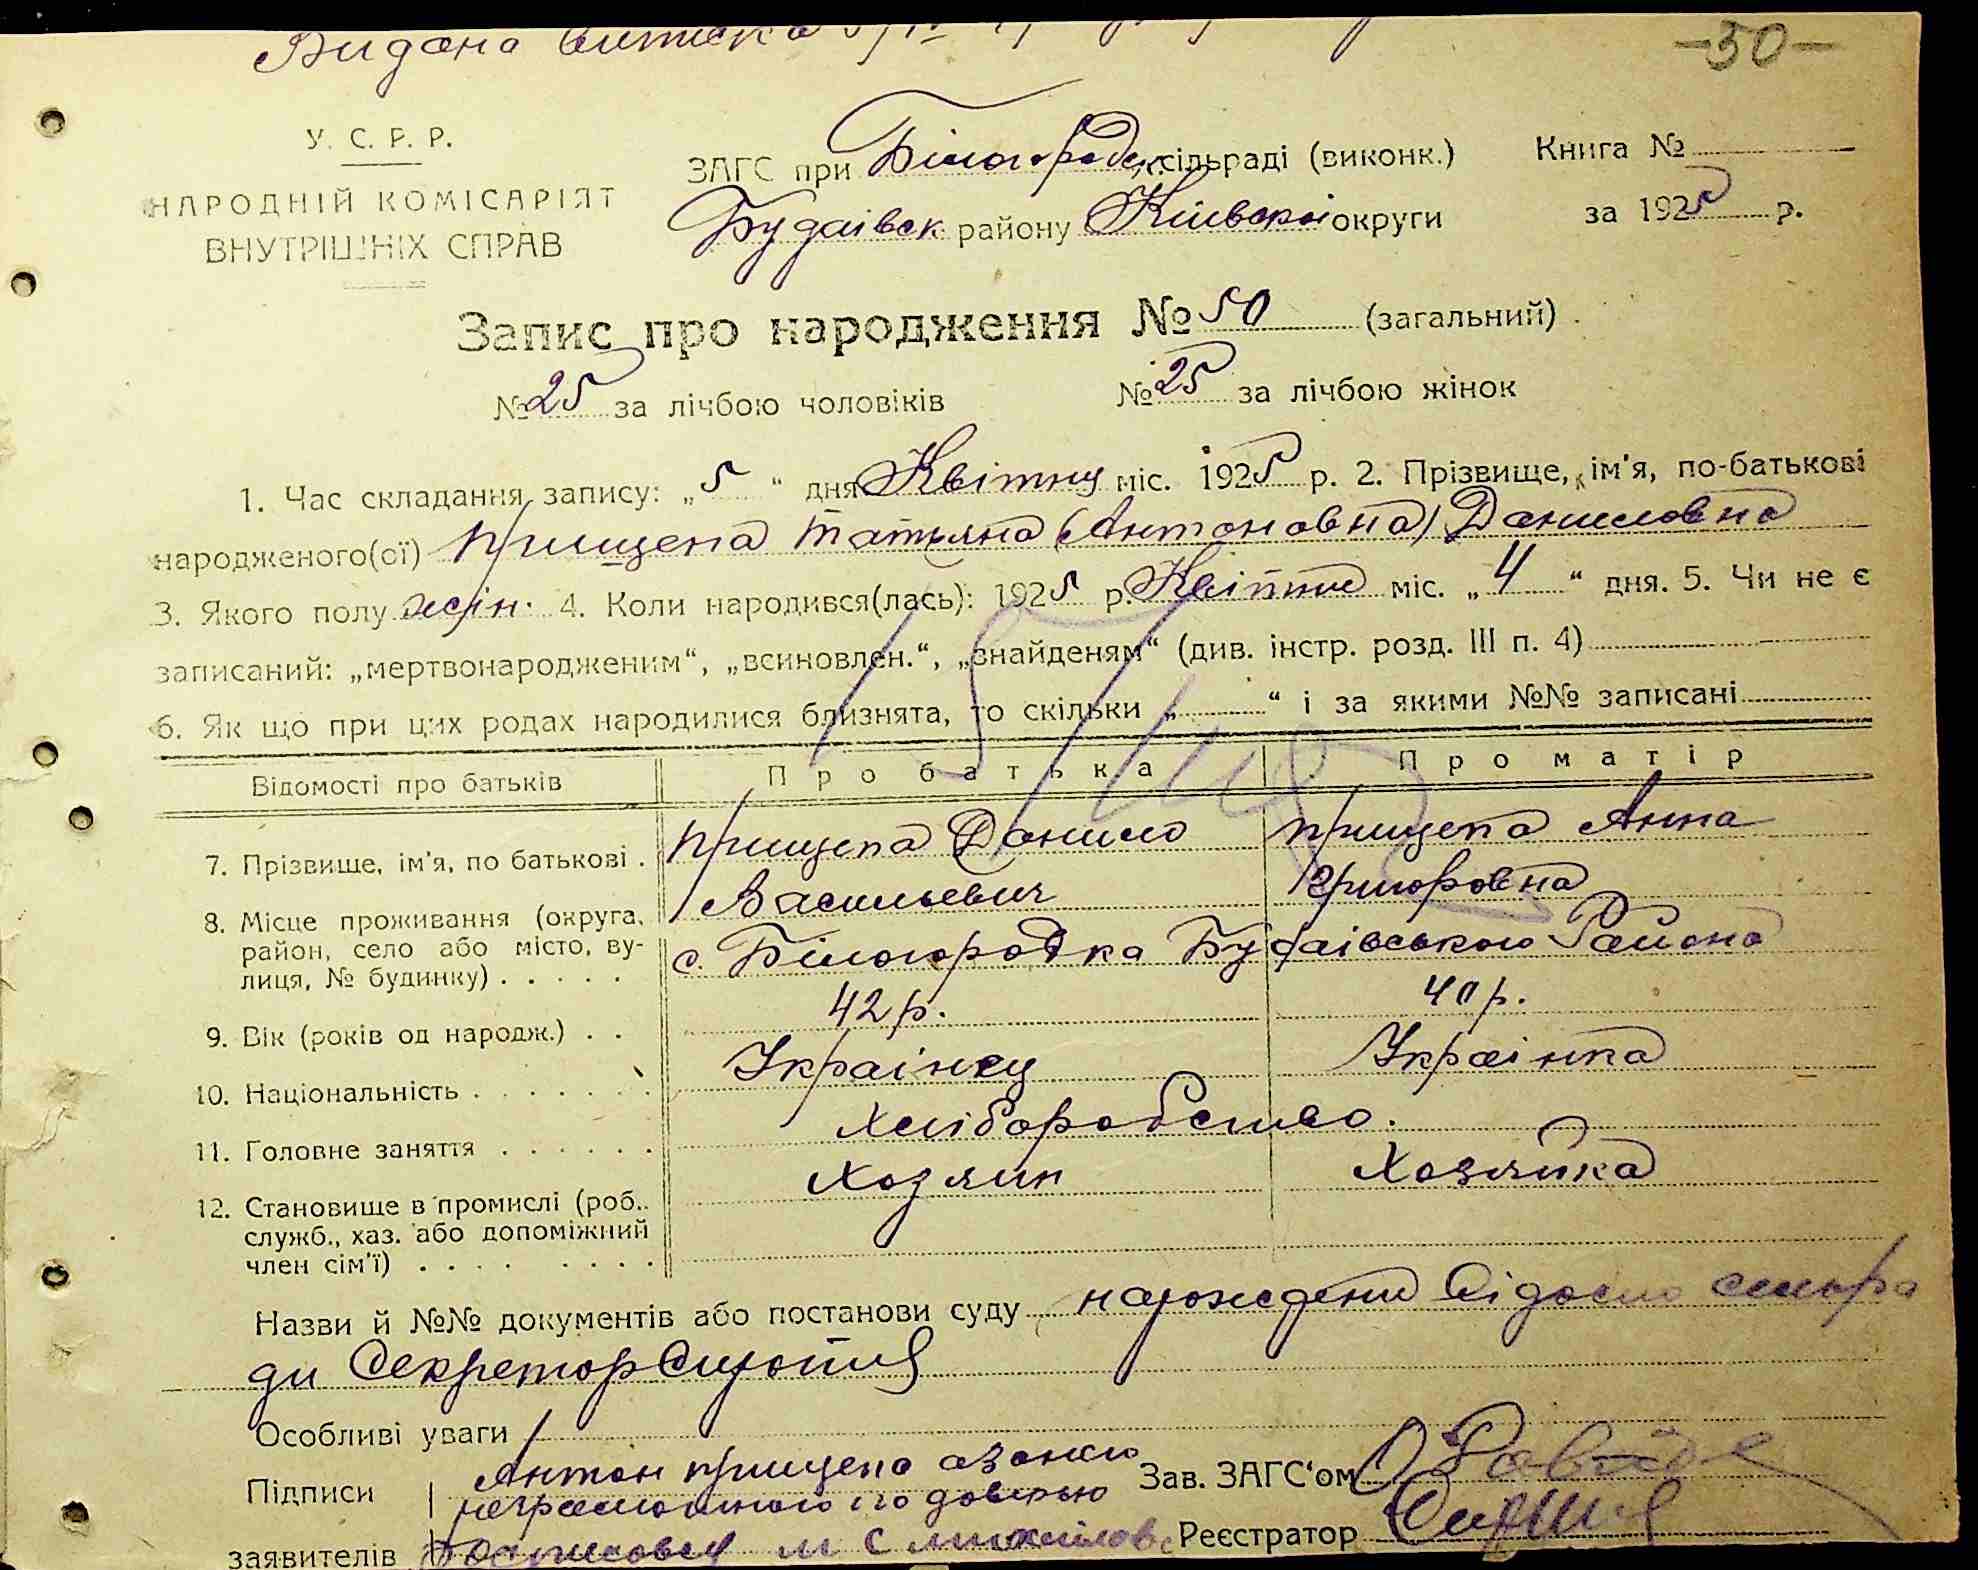 Видана
-50-
У. С. Р. Р.
НАРОДНІЙ КОМІСАРІЯТ
ВНУТРІШНІХ СПРАВ
ЗАГС при Білогородск. сільраді (виконк.) Книга №
Будаівск. району Київскоі округи за 1925 р.
Запис про народження № 50 (загальний).
№ 25 за лічбою чоловіків № 25 за лічбою жінок
1. Час складання запису: „5“ дня Квітну міс. 1925 р. 2. Прізвище, ім'я, по-батькові
народженого(ої) Прищепа Татьяна (Антоновна) Даниловна
3. Якого полу жін. 4. Коли народився(лась): 1925 р. Квітня міс. „4“ дня. 5. Чи не є
записаний: „мертвонародженим“, „всиновлен.“, „знайденям“ (див. інстр. розд. III п. 4)
6. Як що при цих родах народилися близнята, то скільки „ “ і за якими №№ записані
Відомості про батьків Про батька Про матір
7. Прізвище, ім'я, по батькові . Прищепа Данило Прищепа Анна
Васильевич Григоровна
8. Місце проживання (округа, район, село або місто, вулиця, № будинку) . . . . . с. Білогородка Будаівського Района
9. Вік (років од народж.) . . 42 р. 40 р.
10. Національність . . . . . . . Украінец Украінка
11. Головне заняття . . . . . . Хліборобство.
12. Становище в промислі (роб., служб., хаз. або допоміжний член сім'ї) . . . . . . . . Хозяин Хозяйка
Назви й №№ документів або постанови суду сильра
ди Секретар
Особливі уваги
Підписи Антон Прищепа а за него Зав. ЗАГС'ом
неграмотного его доверью
заявителів Реєстратор